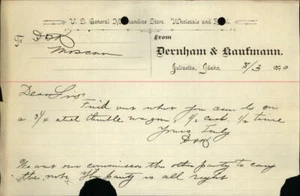 U. S. General Merchandise Store. Wholesale and Retail.
D&K
Moscow
From
Dernham & Kaufmann.
Juliaetta, Idaho, 8/3 1890
Dear Sirs
Find out what you can do on
a 3¼ steel thimble wagon ½ cash ½ time
Yours truly
D&K
We want our commission the other party to carry
the note. The party is all right